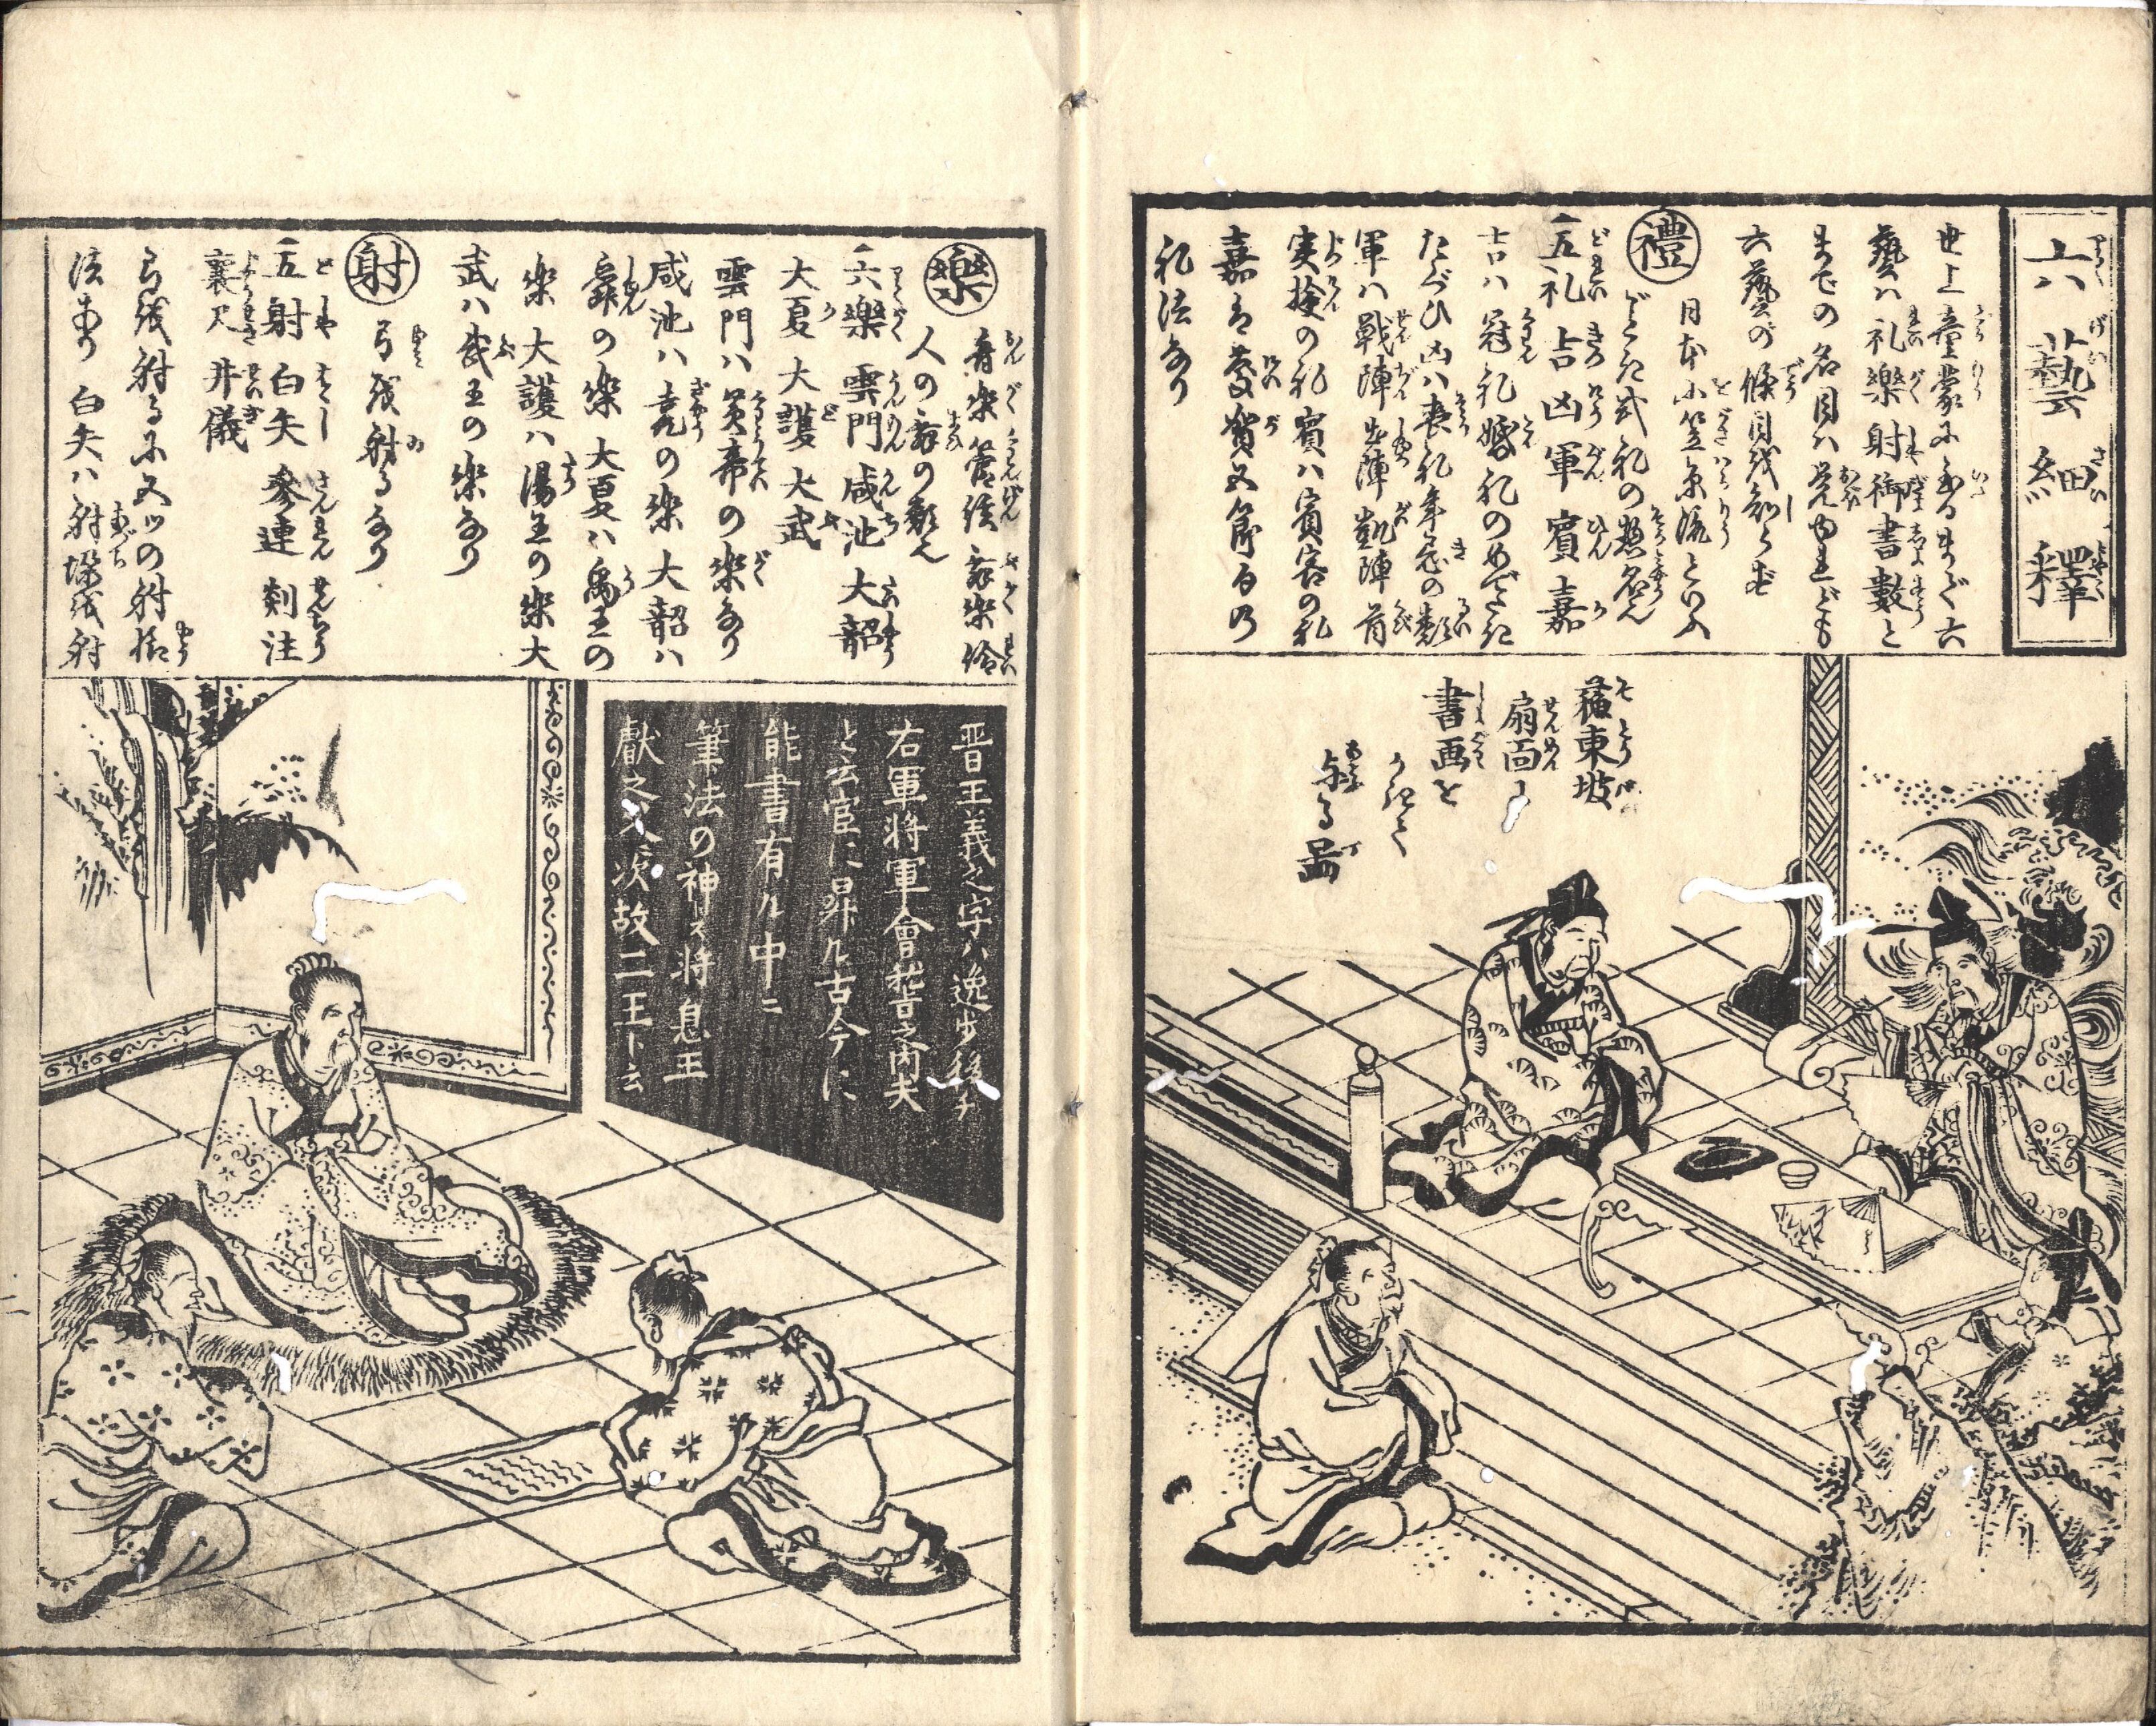 六藝細釋
世上童蒙に至るまで六
藝ハ礼樂射御書數と
までの名目ハ覚ゆれども
六藝の條目を知らず
禮
日本小笠原流といふ
ごとき式礼の惣名也
一五礼 吉 凶 軍 賓 嘉
吉ハ冠礼婚礼のめでたき
たぐひ凶ハ喪礼年忌の類
軍ハ戦陣出陣凱陣首
実撿の礼賓ハ賓客の礼
嘉は慶賀五節句の
礼法なり
蘓東坡
扇面に
書画を
かきて
与る圖
樂
音楽管絃舞楽伶
人の舞の類也
一六樂 雲門 咸池 大韶
大夏 大護 大武
雲門ハ黄帝の楽なり
咸池ハ尭の楽 大韶ハ
舜の楽 大夏ハ禹王の
楽 大護ハ湯王の楽 大
武ハ武王の楽なり
射
弓を射るなり
一五射 白矢 参連 剡注
襄尺 井儀
弓を射るに五ツの射様
法あり 白矢ハ射垜を射
晋王義之字ハ逸少後チ
右軍将軍會稽之内史
と云官に昇ル古今に
能書有ル中ニ
筆法の神ス将息王
獻之又次故二王ト云